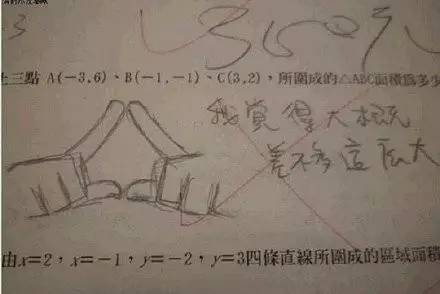 3 350元
上三點 A(−3,6)、B(−1,−1)、C(3,2),所圍成的△ABC面積為多少
我覺得大概
差不多這麼大
由x=2,x=−1,y=−2,y=3四條直線所圍成的區域面積